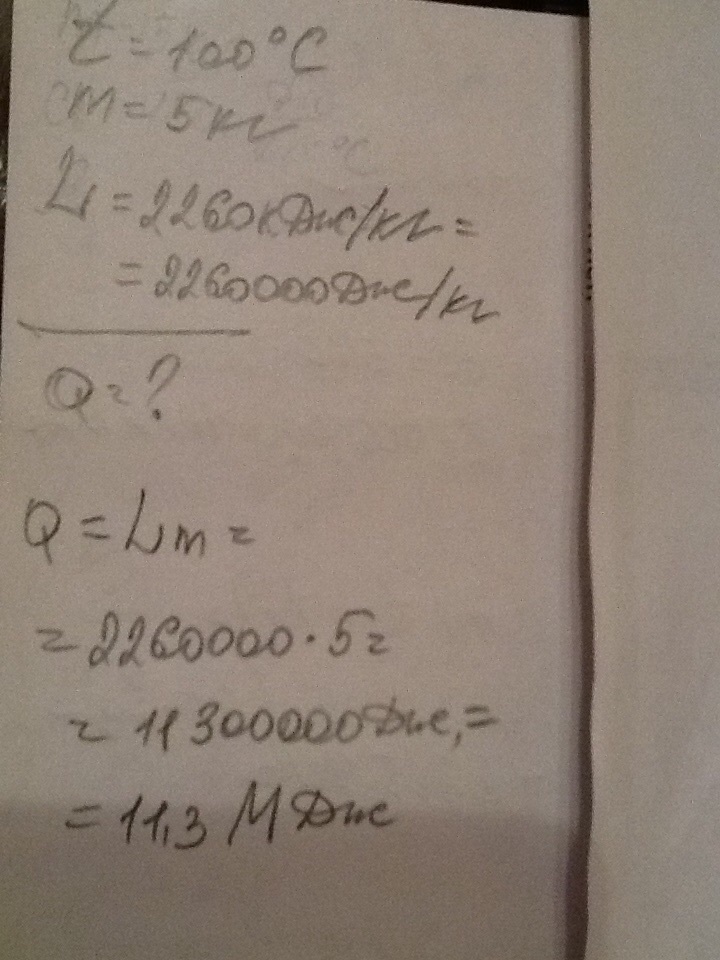 t = 100°C
m = 5 кг
L = 2260кДж/кг =
= 2260000Дж/кг
Q = ?
Q = Lm =
= 2260000 · 5 =
= 11300000Дж, =
= 11,3 МДж